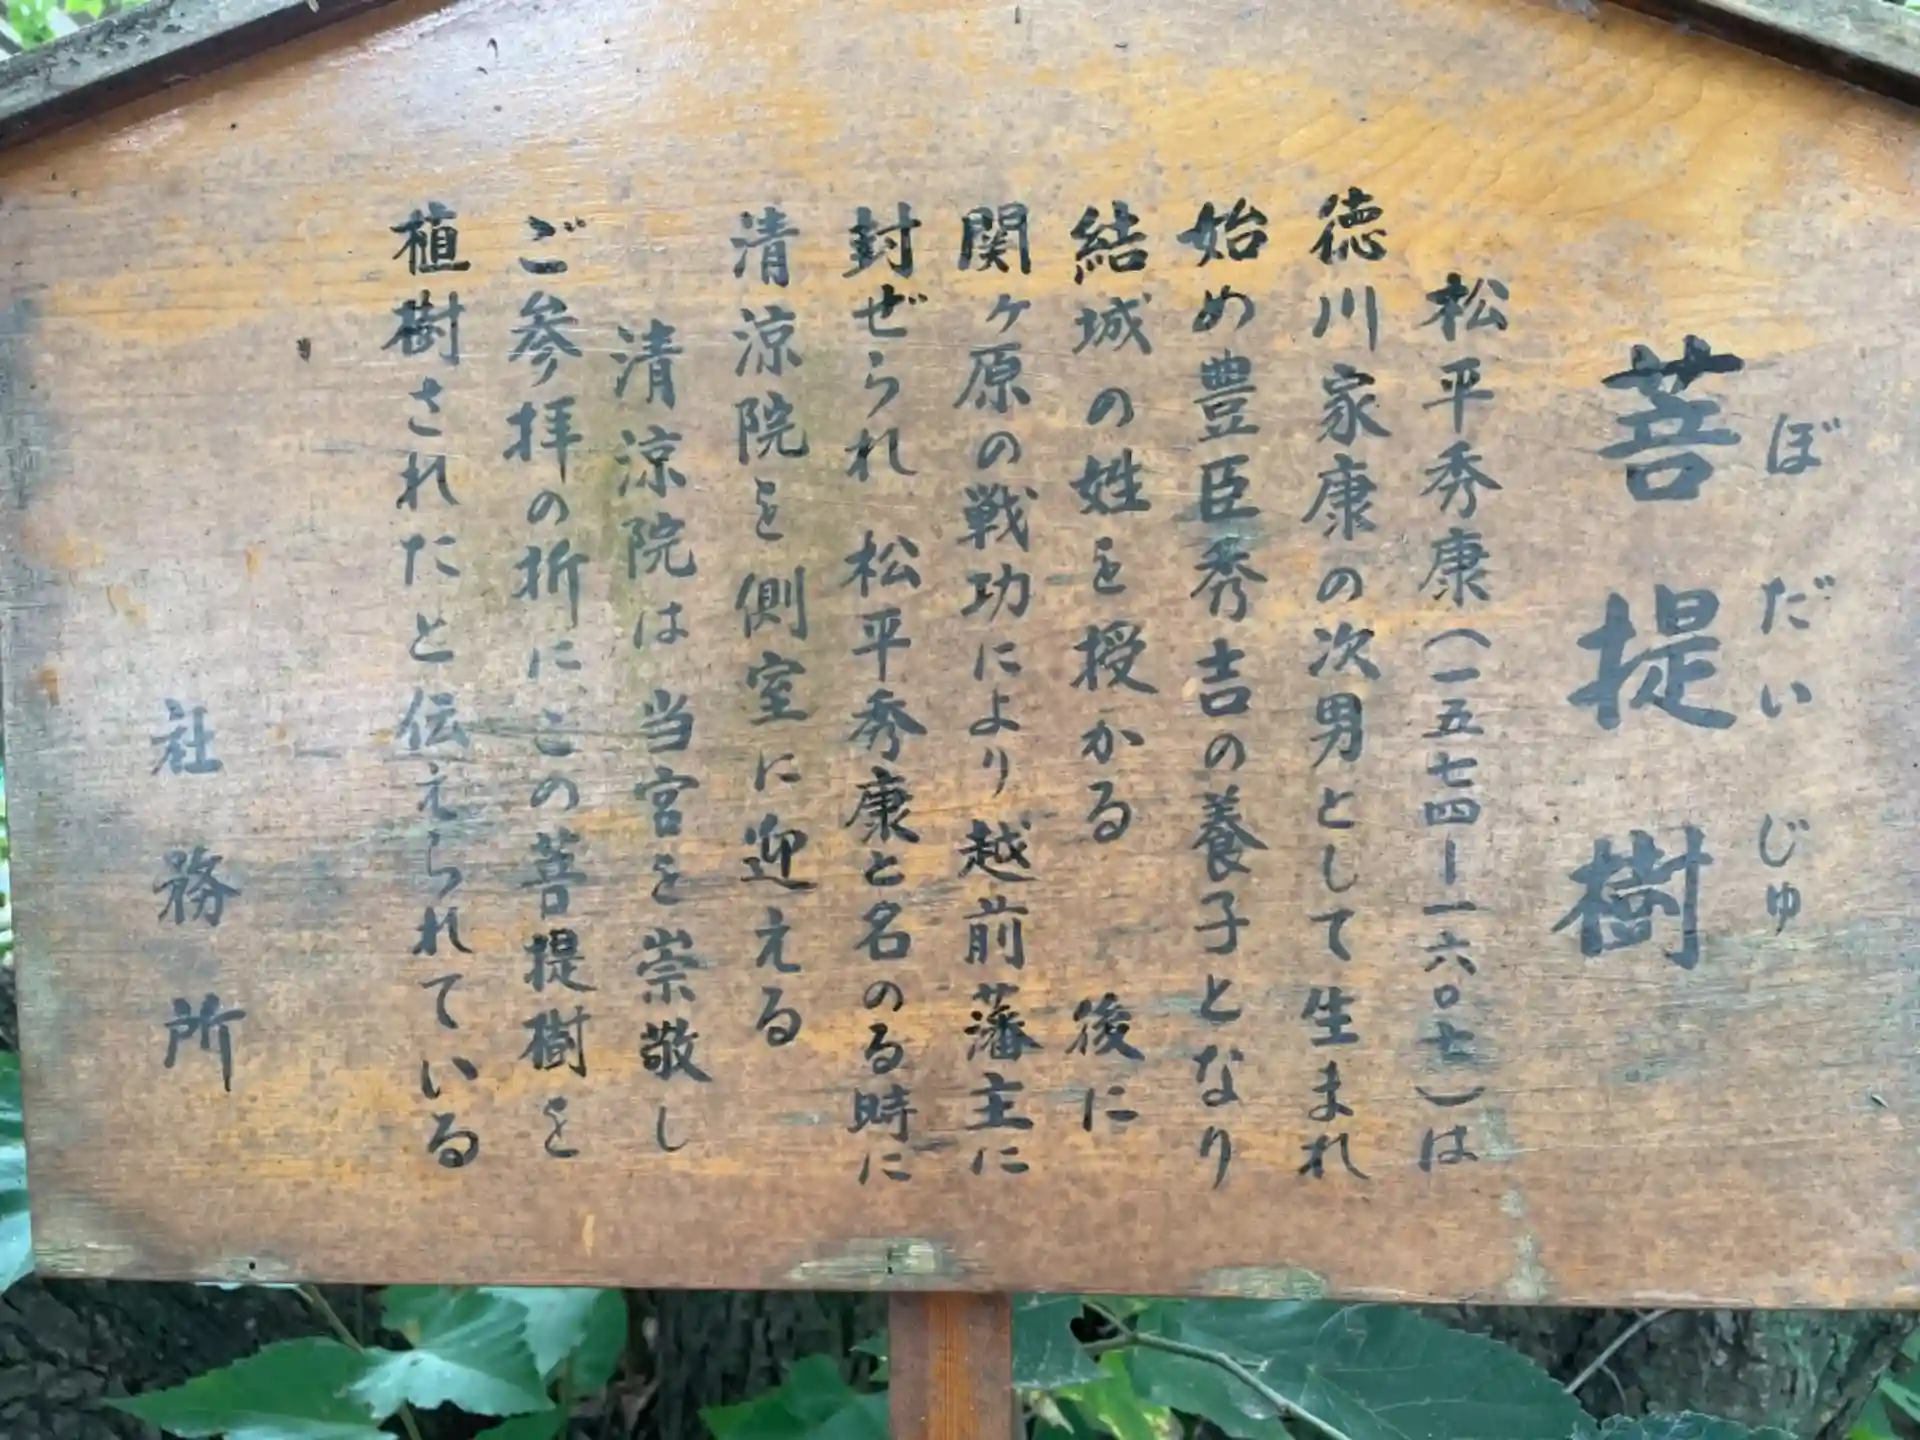 ぼだいじゅ
菩提樹
松平秀康(一五七四ー一六〇七)は
徳川家康の次男として生まれ
始め豊臣秀吉の養子となり
結城の姓を授かる 後に
関ヶ原の戦功により越前藩主に
封ぜられ 松平秀康と名のる時に
清涼院を側室に迎える
清涼院は 当宮を崇敬し
ご参拝の折にこの菩提樹を
植樹されたと伝えられている
社務所